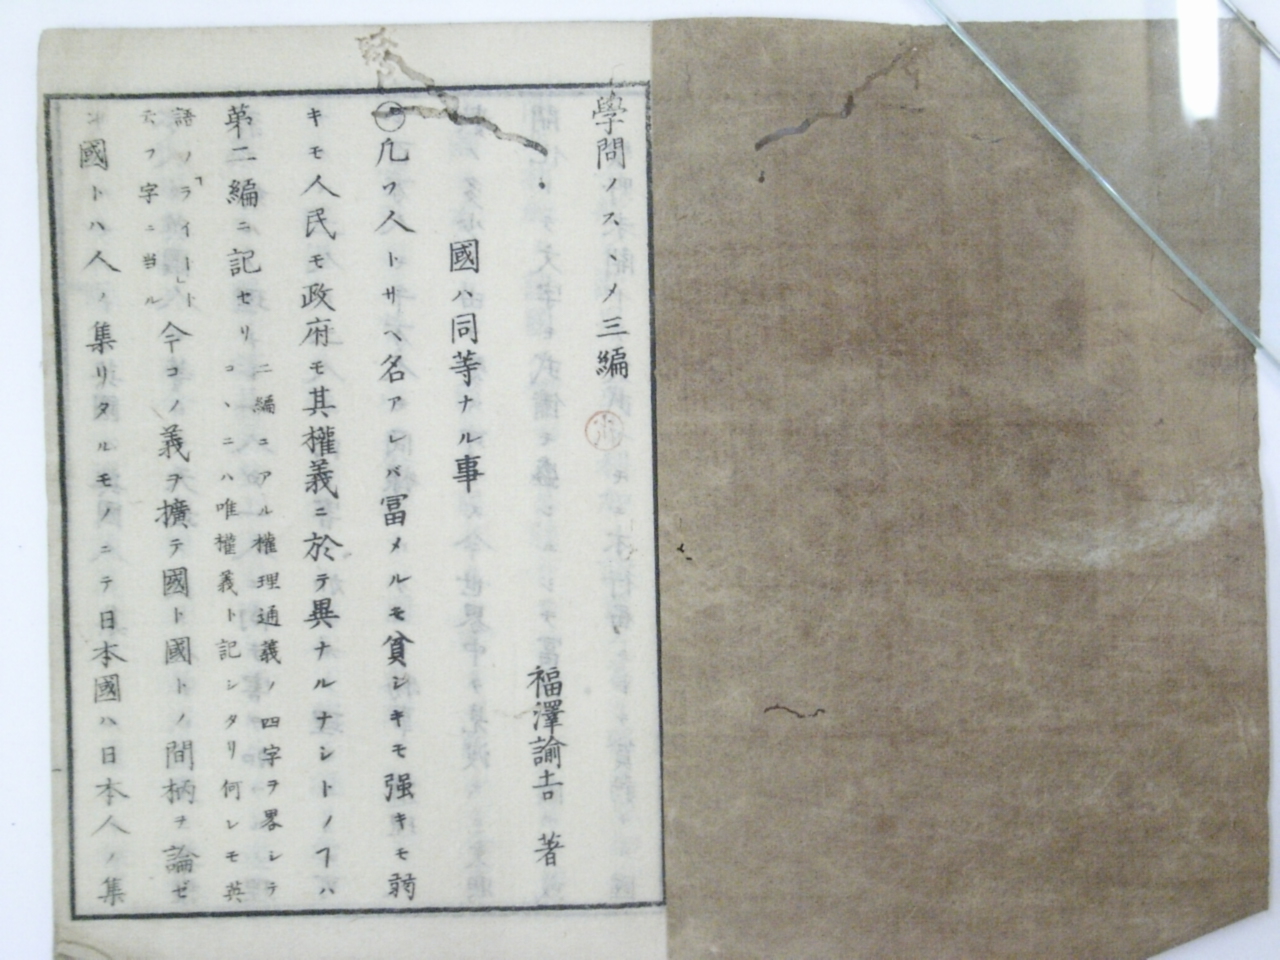 學問ノスヽメ三編
福澤諭吉 著
國ハ同等ナル事
凡ソ人トサヘ名アレバ冨メルモ貧シキモ强キモ弱
キモ人民モ政府モ其權義ニ於テ異ナルナシトノヿハ
第二編ニ記セリ 二編ニアル權理通義ノ四字ヲ畧シテ
コヽニハ唯權義ト記シタリ何レモ英
語ノ「ライト」ト
云フ字ニ当ル 今コノ義ヲ擴テ國ト國トノ間柄ヲ論ゼ
ン國トハ人ノ集リタルモノニテ日本國ハ日本人ノ集